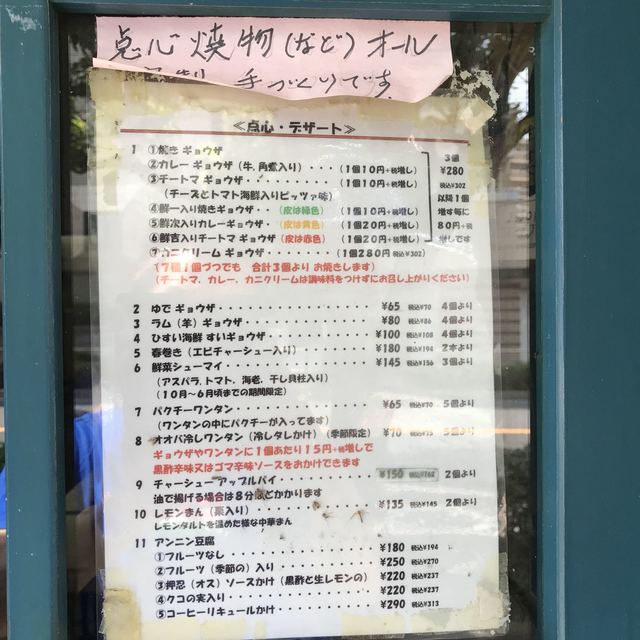 点心焼物(など)オール
手づくりです
≪点心・デザート≫
1 ①焼き ギョウザ
②カレー ギョウザ（牛、角煮入り）・・・（1個10円+税増し）
③チートマ ギョウザ・・・・・・・・・（1個10円+税増し）
（チーズとトマト海鮮入りピッツァ味）
④鮮一入り焼きギョウザ・・（皮は緑色）（1個10円+税増し）
⑤鮮次入りカレーギョウザ・（皮は黄色）（1個20円+税増し）
⑥鮮吉入りチートマ ギョウザ（皮は赤色）（1個20円+税増し）
⑦カニクリーム ギョウザ・・・・・（1個280円 税込¥302）
3個
¥280
税込¥302
以降1個
増す毎に
80円+税
増しです
（7種1個づつでも 合計3個より お焼きします）
（チートマ、カレー、カニクリームは調味料をつけずにお召し上がりください）
2 ゆで ギョウザ・・・・・・・・・・・・¥65 税込¥70 4個より
3 ラム（羊）ギョウザ・・・・・・・・・・¥80 税込¥86 4個より
4 ひすい海鮮 すいギョウザ・・・・・・・¥100 税込¥108 4個より
5 春巻き（エビチャーシュー入り）・・・・¥180 税込¥194 2本より
6 鮮菜シューマイ・・・・・・・・・・・・¥145 税込¥156 3個より
（アスパラ、トマト、海老、干し貝柱入り）
（10月～6月頃までの期間限定）
7 パクチーワンタン・・・・・・・・・・・¥65 税込¥70 5個より
（ワンタンの中にパクチーが入ってます）
8 オオバ冷しワンタン（冷しタレかけ）（季節限定） ¥70 税込¥75 5個より
ギョウザやワンタンに1個あたり15円+税増しで
黒酢辛味又はゴマ辛味ソースをおかけできます
9 チャーシュー アップルパイ・・・・・・・¥150 税込¥162 2個より
油で揚げる場合は8分ほどかかります
10 レモンまん（栗入り）・・・・・・・・・¥135 税込¥145 2個より
レモンタルトを温めた様な中華まん
11 アンニン豆腐
①フルーツなし・・・・・・・・・・・・¥180 税込¥194
②フルーツ（季節の）入り・・・・・・・¥250 税込¥270
③押忍（オス）ソースかけ（黒酢と生レモンの）¥220 税込¥237
④クコの実入り・・・・・・・・・・・・¥220 税込¥237
⑤コーヒーリキュールかけ・・・・・・・¥290 税込¥313